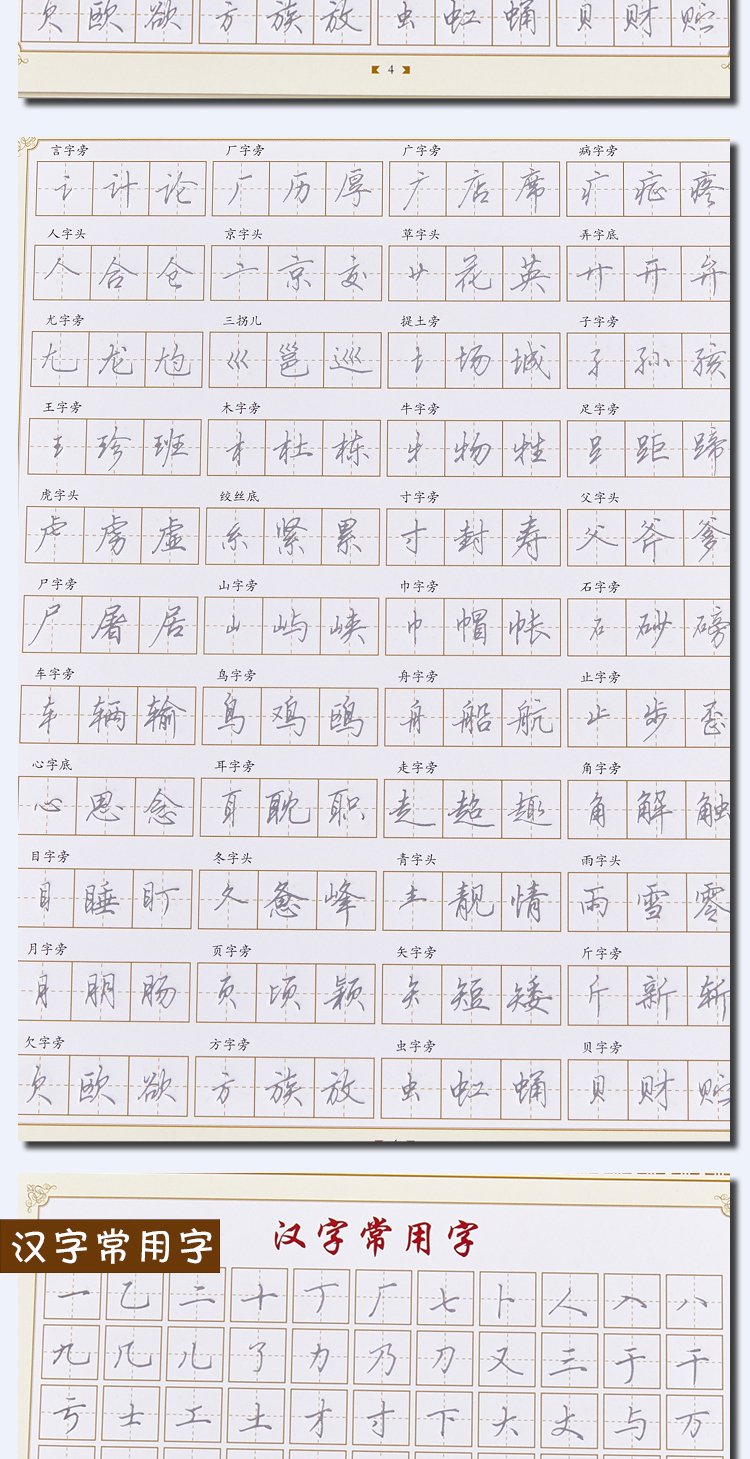 欠 欧 欲 方 族 放 虫 虹 蛹 贝 财
4
言字旁 厂字旁 广字旁 病字旁
讠 计 论 厂 历 厚 广 店 席 疒 症 疼
人字头 京字头 草字头 弄字底
人 合 仓 亠 京 变 艹 花 英 廾 开 弁
尤字旁 三拐儿 提土旁 子字旁
尢 龙 尥 巛 邕 巡 土 场 城 子 孙 孩
王字旁 木字旁 牛字旁 足字旁
王 珍 班 木 杜 栋 牛 物 牲 足 距 蹄
虎字头 绞丝底 寸字旁 父字头
虍 虏 虚 糸 紧 累 寸 封 寿 父 斧 爹
尸字旁 山字旁 巾字旁 石字旁
尸 屠 居 山 屿 峡 巾 帽 帐 石 砂 磅
车字旁 鸟字旁 舟字旁 止字旁
车 辆 输 鸟 鸡 鸥 舟 船 航 止 步 歪
心字底 耳字旁 走字旁 角字旁
心 恩 念 耳 耽 职 走 超 趣 角 解 触
目字旁 冬字头 青字头 雨字头
目 睡 盯 夂 惫 峰 龶 靓 情 雨 雪 零
月字旁 页字旁 矢字旁 斤字旁
月 朋 肠 页 顷 颖 矢 短 矮 斤 新 斩
欠字旁 方字旁 虫字旁 贝字旁
欠 欧 欲 方 族 放 虫 虹 蛹 贝 财
汉字常用字
汉字常用字
一 乙 二 十 丁 厂 七 卜 人 入 八
九 几 儿 了 力 乃 刀 又 三 于 干
亏 士 工 土 才 寸 下 大 丈 与 万